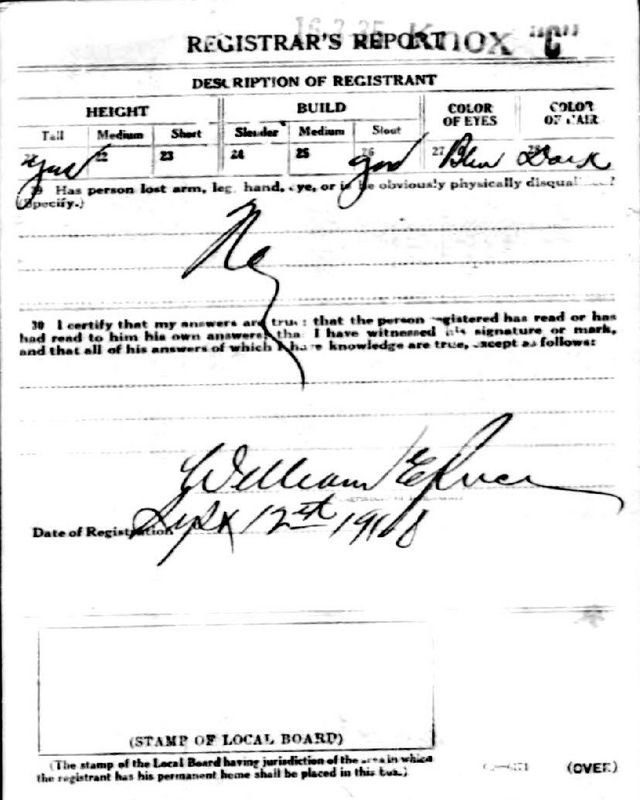 16-2-35 Knox "C"
REGISTRAR'S REPORT
DESCRIPTION OF REGISTRANT
HEIGHT BUILD COLOR OF EYES COLOR OF HAIR
Tall Medium Short Slender Medium Stout
21 22 23 24 25 26 27 28
yes yes Blue Dark
29 Has person lost arm, leg, hand, eye, or is he obviously physically disqualified?
(Specify.)
No
30 I certify that my answers are true; that the person registered has read or has
had read to him his own answers; that I have witnessed his signature or mark,
and that all of his answers of which I have knowledge are true, except as follows:
William E
Date of Registration Sept 12th 1918
(STAMP OF LOCAL BOARD)
(The stamp of the Local Board having jurisdiction of the area in which
the registrant has his permanent home shall be placed in this box.)
(OVER)